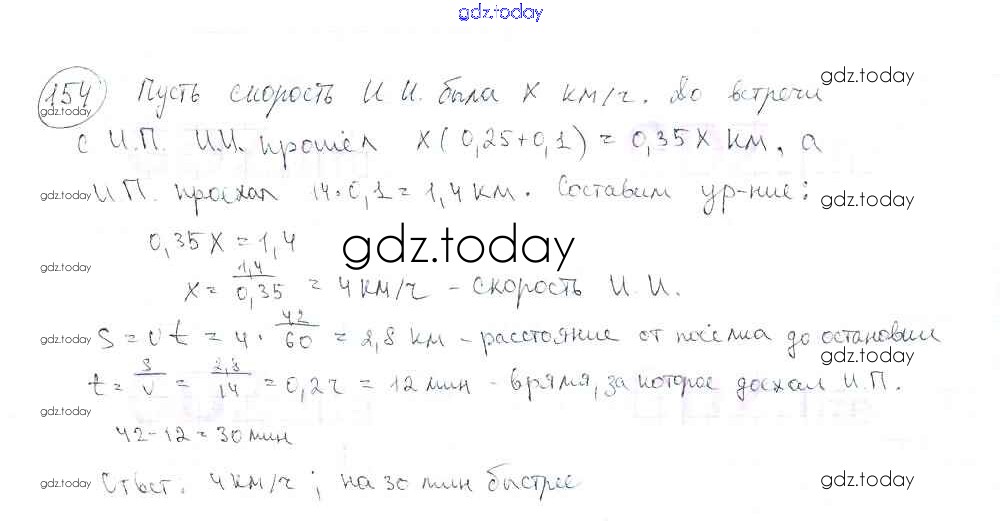 gdz.today
154 Пусть скорость И И. была х км/ч. До встречи
gdz.today
gdz.today
с И.П. И.И. прошёл х(0,25+0,1)=0,35х км, а
gdz.today
И П. проехал 14·0,1=1,4 км. Составим ур-ние:
gdz.today
gdz.today
0,35х=1,4
gdz.today
х=1,4/0,35=4 км/ч - скорость И.И.
gdz.today
S=vt=4·42/60=2,8 км - расстояние от посёлка до остановки
gdz.today
gdz.today
t=S/v=2,8/14=0,2ч=12 мин - время, за которое доехал И.П.
gdz.today
42-12=30 мин
Ответ: 4 км/ч; на 30 мин быстрее
gdz.today
gdz.today